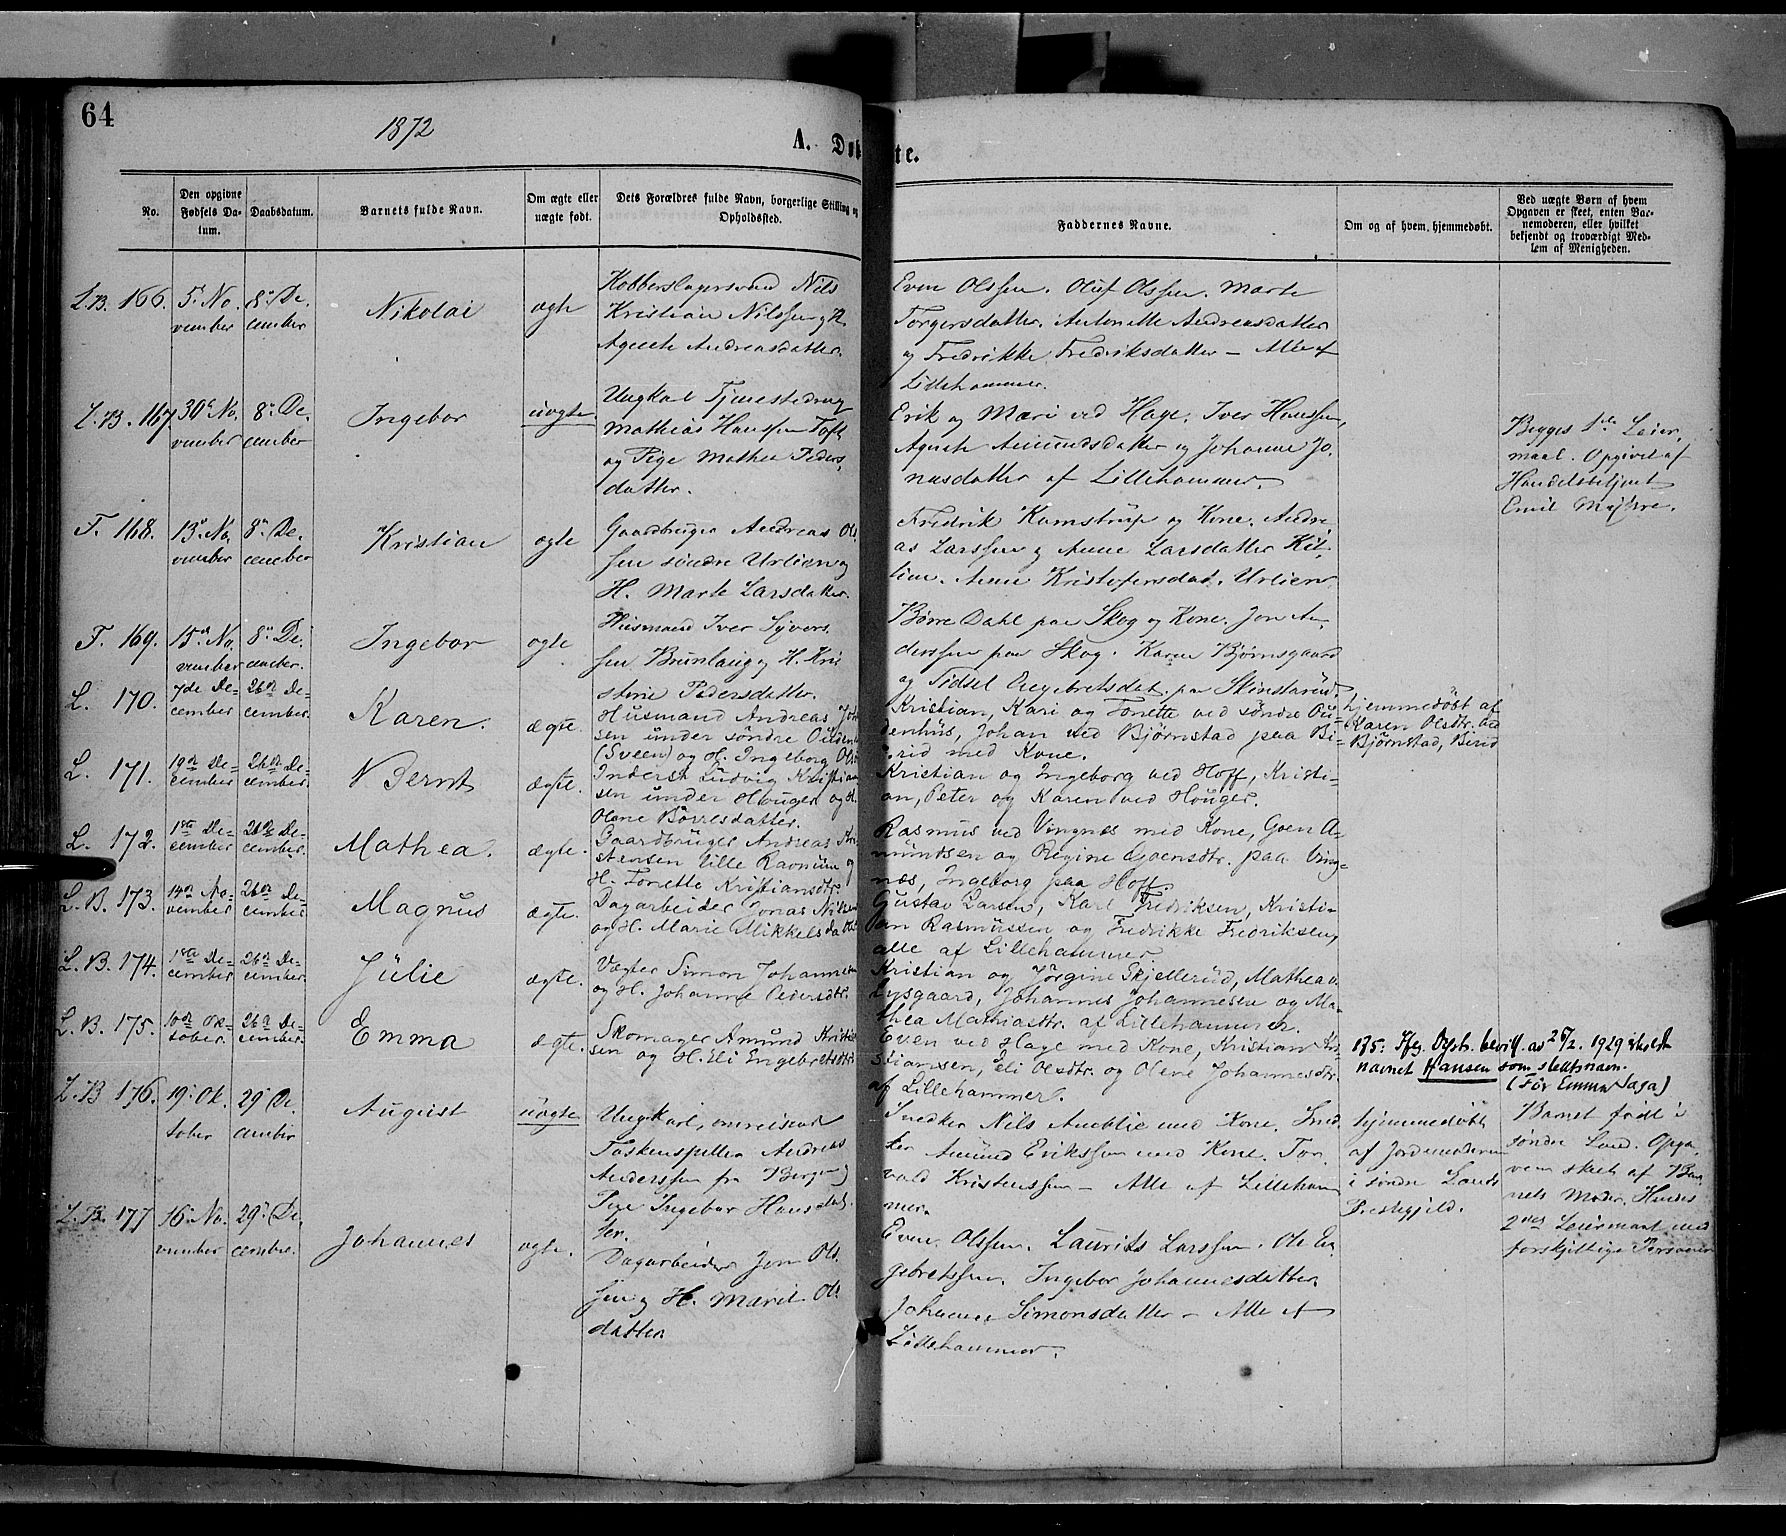 64
1872
A. Døb
te.
No.
Den opgivne Fødsels Datum.
Daabsdatum.
Barnets fulde Navn.
Om ægte eller uægte født.
Dets Forældres fulde Navn, borgerlige Stilling og Opholdssted.
Faddernes Navne.
Om og af hvem, hjemmedøbt.
Ved uægte Børn af hvem Opgaven er skeet, enten Barnemoderen, eller hvilket bekjendt og troværdigt Medlem af Menigheden.
L.B. 166. 5' No- 8' De-
vember cember
Nikolai
ægte
Kobberslagersvend Nils
Kristian Nilssen og H.
Agnethe Andreasdatter.
Even Olssen. Oluf Olssen. Marte
Torgersdatter. Antonette Andreasdatter
og Fredrikke Fredriksdatter – Alle af
Lillehammer.
L.B. 167 30' No- 8' De-
vember cember
Ingebor
uægte
Ungkarl Tjenestedreng
Mathias Hanssen Toft
og Pige Mathea Peders-
datter.
Erik og Mari ved Hage. Iver Hanssen,
Agneth Amundsdatter og Johanne Jo-
nasdatter af Lillehammer.
Begges 1ste Leier-
maal. Opgivet af
Handelsbetjent
Emil
T. 168. 13' No- 8' De-
vember cember
Kristian
ægte
Gaardbruger Andreas Ol-
sen søndre Urlien og
H. Marte Larsdatter.
Fredrik Kamstrup og Kone. Andre-
as Larssen og Anne Larsdatter
Anne Kristofersdat. Urlien
F. 169. 15' No- 8' De-
vember cember.
Ingebor
ægte
Husmand Iver Syvers-
sen Brunlaug og H. Kri-
stine Pedersdatter.
Børre Dahl paa Skog og Kone. Jon An-
derssen paa Skog. Karen Bjørnsgaard
og Sidsel Engebretsdat. paa
L. 170. 7de De- 26de De-
cember cember.
Karen.
ægte.
Husmand Andreas Joh-
sen under søndre Oudenh
(Sveen) og H. Ingeborg Ols
Kristian, Kari og Tonette ved søndre Ou-
denhus, Johan ved Bjørnstad paa Bi-
rid med Kone.
hjemmedøbt af
Karen Olsdtr. ved
Bjørnstad, Birid
L. 171. 19de De- 26de De-
cember cember.
Bernt
ægte.
Inderst Ludvig Kristian-
sen under Houger og H.
Olene Børresdatter.
Kristian og Ingeborg ved Hoff, Kristi-
an, Peter og Karen ved Houger.
L. 172. 1ste De- 26de De-
cember cember.
Mathea.
ægte.
Gaardbruger Andreas Kri-
stensen Lille Ravnum og
H. Tonette Kristiansdtr.
Rasmus ved Vingnes med Kone, Goen A-
mundsen og Regine Goensdtr. paa Ving-
nes, Ingeborg paa Hoff.
L.B. 173. 14de No- 26de De-
vember cember.
Magnus
ægte.
Dagarbeider Jonas Nilsen
og H. Marie Mikkelsdatter
Gustav Larsen, Karl Fredriksen, Kristi-
an Rasmussen og Fredrikke Fredriksen,
alle af Lillehammer.
L.B. 174. 1ste De- 26de De-
cember cember.
Julie
ægte.
Vægter Simon Johannesen
og H. Johanne Pedersdtr.
Kristian og Jørgine Skjellerud, Mathea v.
Lysgaard, Johannes Johannesen og Ma-
thea Mathiasdtr. af Lillehammer.
L.B. 175. 10de Ok- 26de De-
tober. cember.
Emma
ægte.
Skomager Amund Kristian-
sen og H. Eli Engebretsdtr.
Even ved Hage med Kone, Kristian Kri-
stiansen, Eli Olsdtr. og Olene Johannesdtr.
af Lillehammer.
175: Ifg. Opstr. bevill. av 25/2. 1929 tilholdt
navnet Hansen som slektsnavn.
(For Emma Saga)
L.B 176. 19' Ok- 29' De-
tober cember
August
uægte
Ungkarl, omreisende
Taskenspiller Andreas
Anderssen fra Bergen og
Pige Ingebor Hansdat-
ter.
Snedker Nils Amblie med Kone. Sned-
ker Amund Erikssen med Kone. Tor-
vald Kristenssen – Alle af Lilleham-
mer.
hjemmedøbt
af Jordemoderen
i søndre Lands
Prestegjeld.
Barnet født i
søndre Land. Opga-
ven skeet af Bar-
nets Moder. Hendes
2det Leiermaal med
forskjellige Personer
L.B. 177 16' No- 29' De-
vember cember.
Johannes
ægte.
Dagarbeider Jon Ols-
sen og H. Marit Ols-
datter
Even Olssen. Laurits Larssen. Ole En-
gebretssen. Ingebor Johannesdatter.
Johanne Simonsdatter – Alle af
Lillehammer.